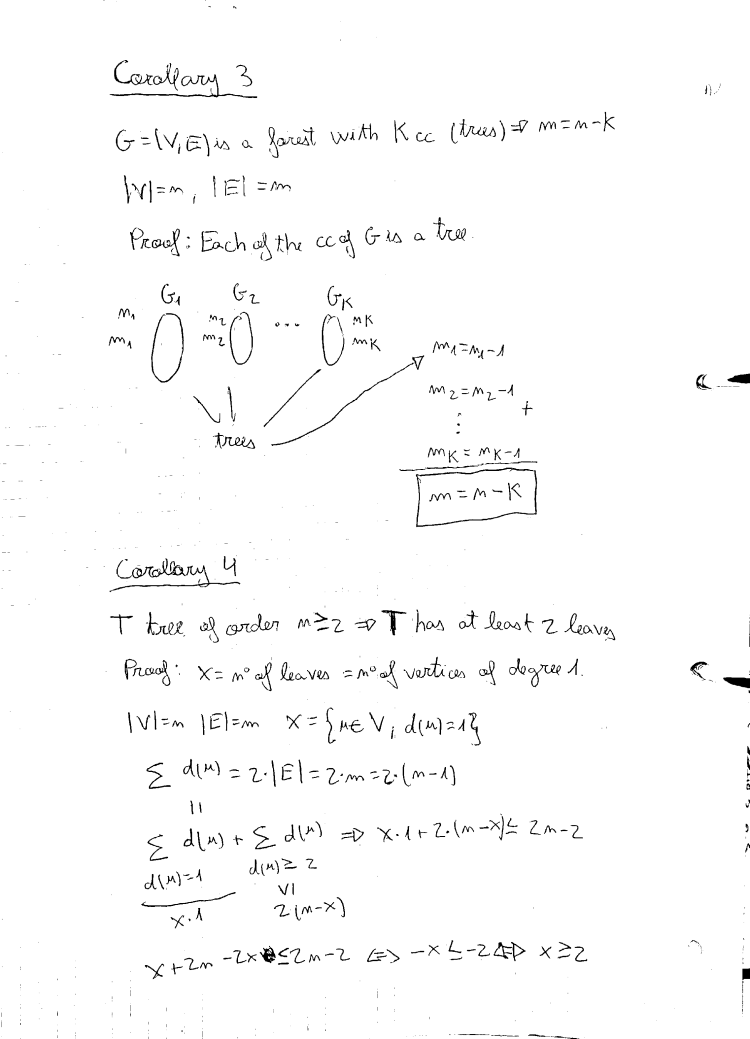 Corollary 3
G=(V,E) is a forest with K cc (trees) ⇒ m=n-K
|V|=n, |E|=m
Proof: Each of the cc of G is a tree.
G1 G2 ... GK
n1 n2 nK
m1 m2 mK
trees
m1=n1-1
m2=n2-1 +
⋮
mK=nK-1
m=n-K
Corollary 4
T tree of order n≥2 ⇒ T has at least 2 leaves
Proof: x= nº of leaves = nº of vertices of degree 1.
|V|=n |E|=m x={u∈V; d(u)=1}
∑ d(u) = 2·|E|=2·m=2·(n-1)
||
∑ d(u) + ∑ d(u) ⇒ x·1+2·(n-x)≤ 2n-2
d(u)=1 d(u)≥2
x·1 V|
2(n-x)
x+2n-2x≤2n-2 ⇔ -x≤-2 ⇔ x≥2